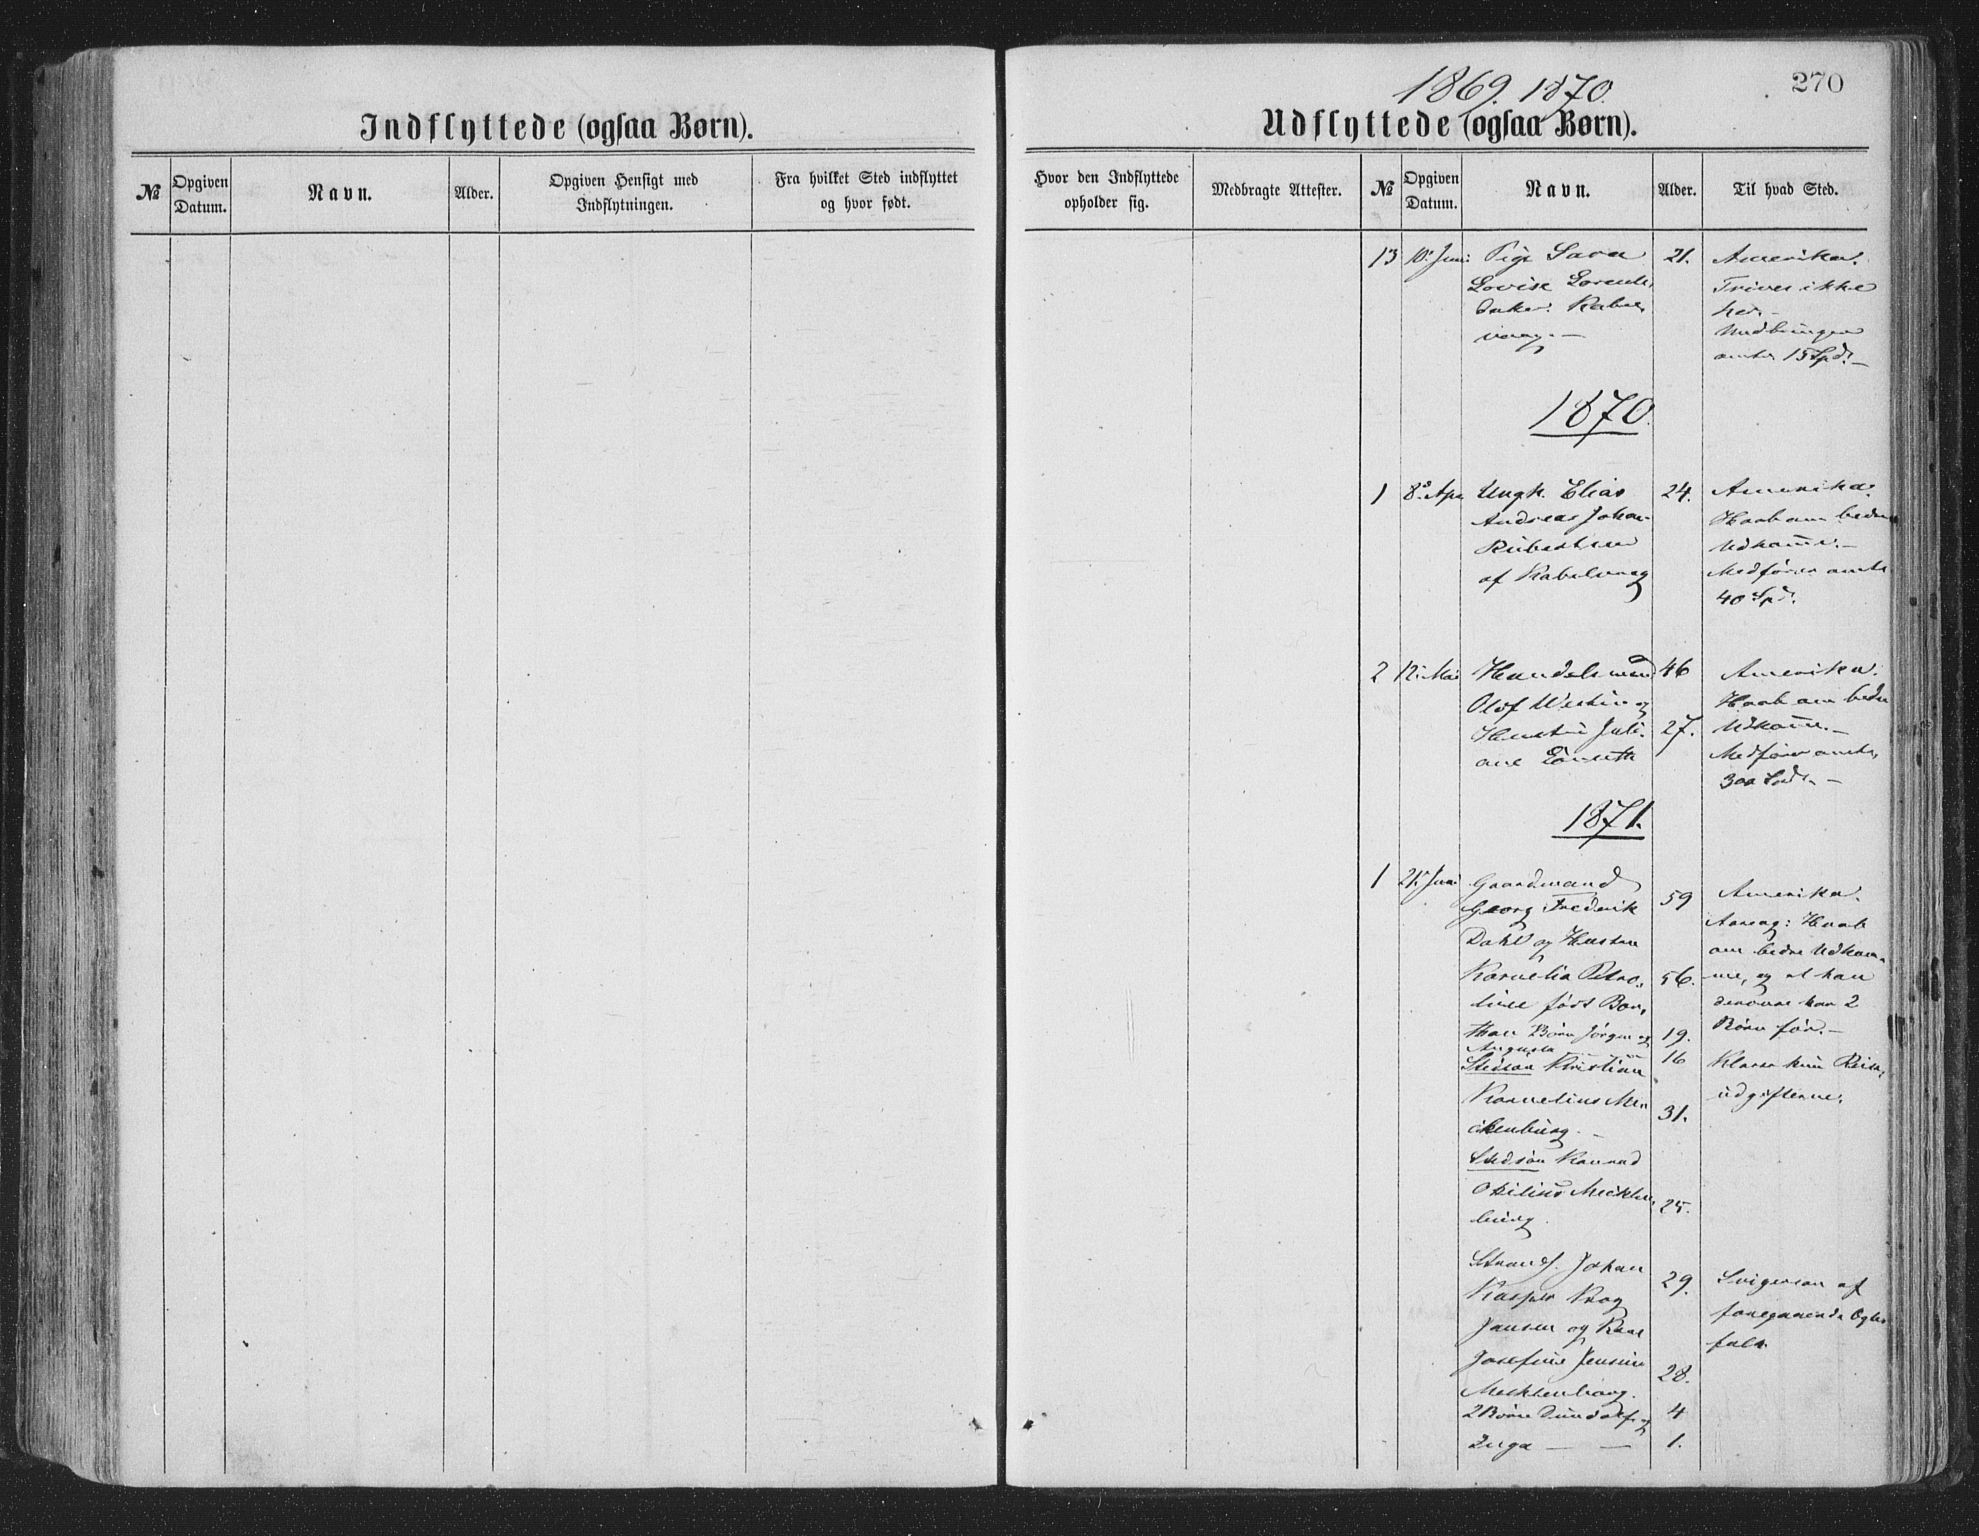 Indflyttede (ogsaa Børn).
№
Opgiven Datum.
Navn.
Alder.
Opgiven Hensigt med Indflytningen.
Fra hvilket Sted indflyttet og hvor født.
1869. 1870.
270
Udflyttede (ogsaa Børn).
Hvor den Indflyttede opholder sig.
Medbragte Attester.
№
Opgiven Datum.
Navn.
Alder.
Til hvad Sted.
13 10. Juni Pige Sara 21. Amerika.
Lovise Trives ikke
her.
Medbringer
vaag. 15 Spd.
1870
1 8. Apr Ungk. Elias 24. Amerika.
Andreas Johan Haab om bedre
Udkomme.
af Kabelvaag Medfører
40 Spd.
2 12. Mai Handelsmand 46 Amerika.
Olof og Haab om bedre
Hustru Juli- 27. Udkomme.
ane Medfører
300 Spd.
1871.
1 21. Juni Gaardmand
Georg Fredrik 59 Amerika.
Dahl og Hustru Aarsag: Haab
om bedre Udkom-
Kornelia Petro- 56. me, og at han
line født har 2
Børn Jørgen og 19. Børn før.
Augusta
Stedsøn Kristian 16 Klarer kun Reise-
udgifterne.
Kornelius Me- 31.
cklenburg.
Stedsøn Konrad
Otilius Mecklen- 25.
burg.
Strands. Johan 29. Svigersøn af
Kasper Krog foregaaende Ægte-
Jansen og Kone folk.
Josefine Jensine 28.
Mecklenborg.
2 Børn og 4
Inga 1.